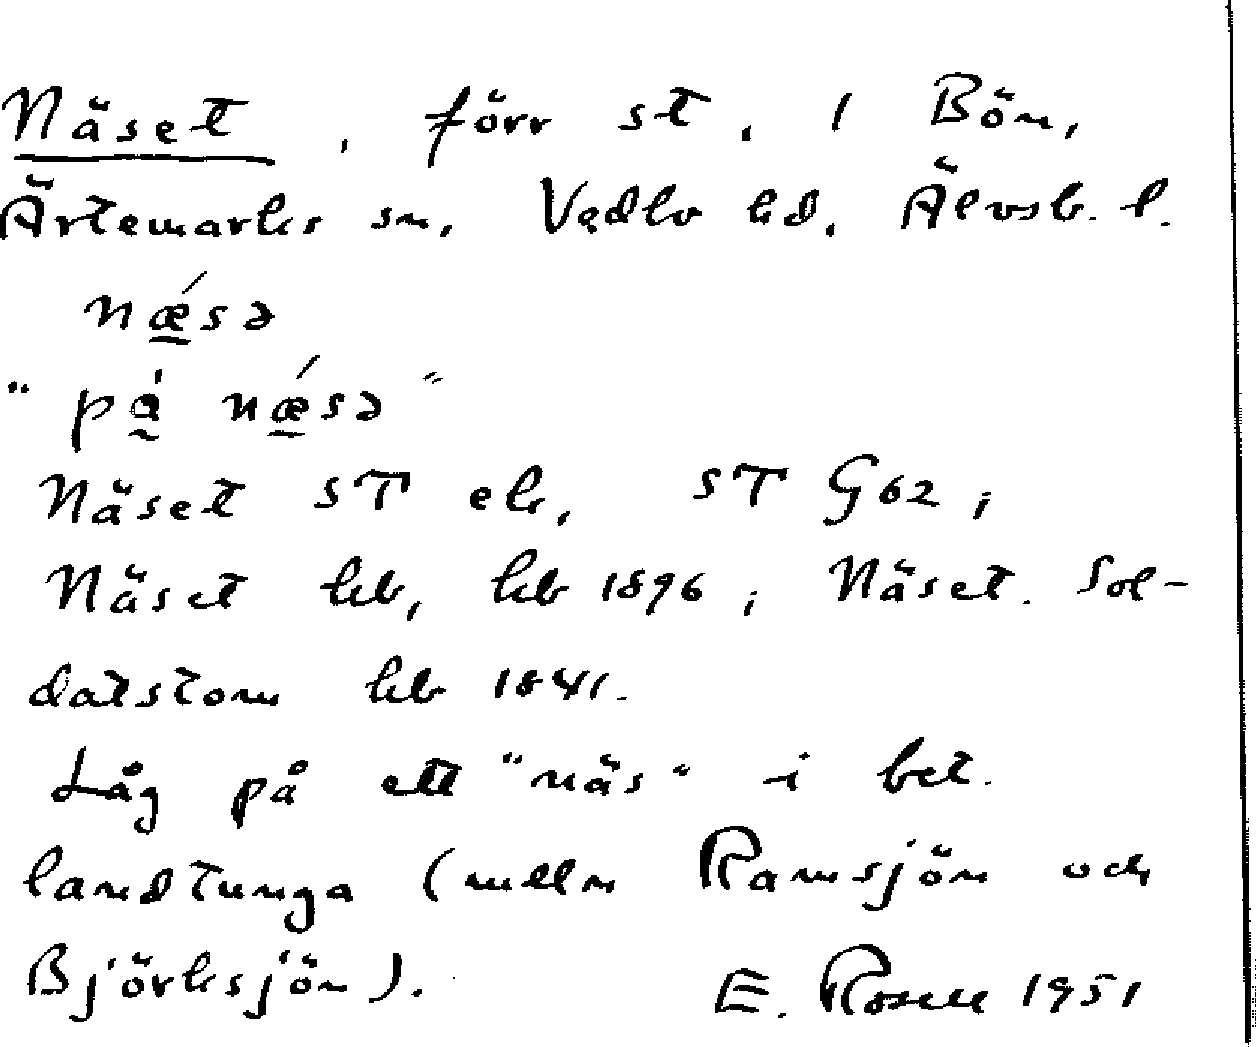 Näset, förr st, i Bön,
Ärtemarks sn, Vedbo hd, Älvsb. l.
næ´sə
"på næ´sə"
Näset ST ek, ST G62;
Näset kb, kb 1896; Näset. Sol-
datstom kb 1841.
Låg på ett "näs" i bet.
landtunga (melln Ramsjön och
Björksjön).
E. Rosell 1951